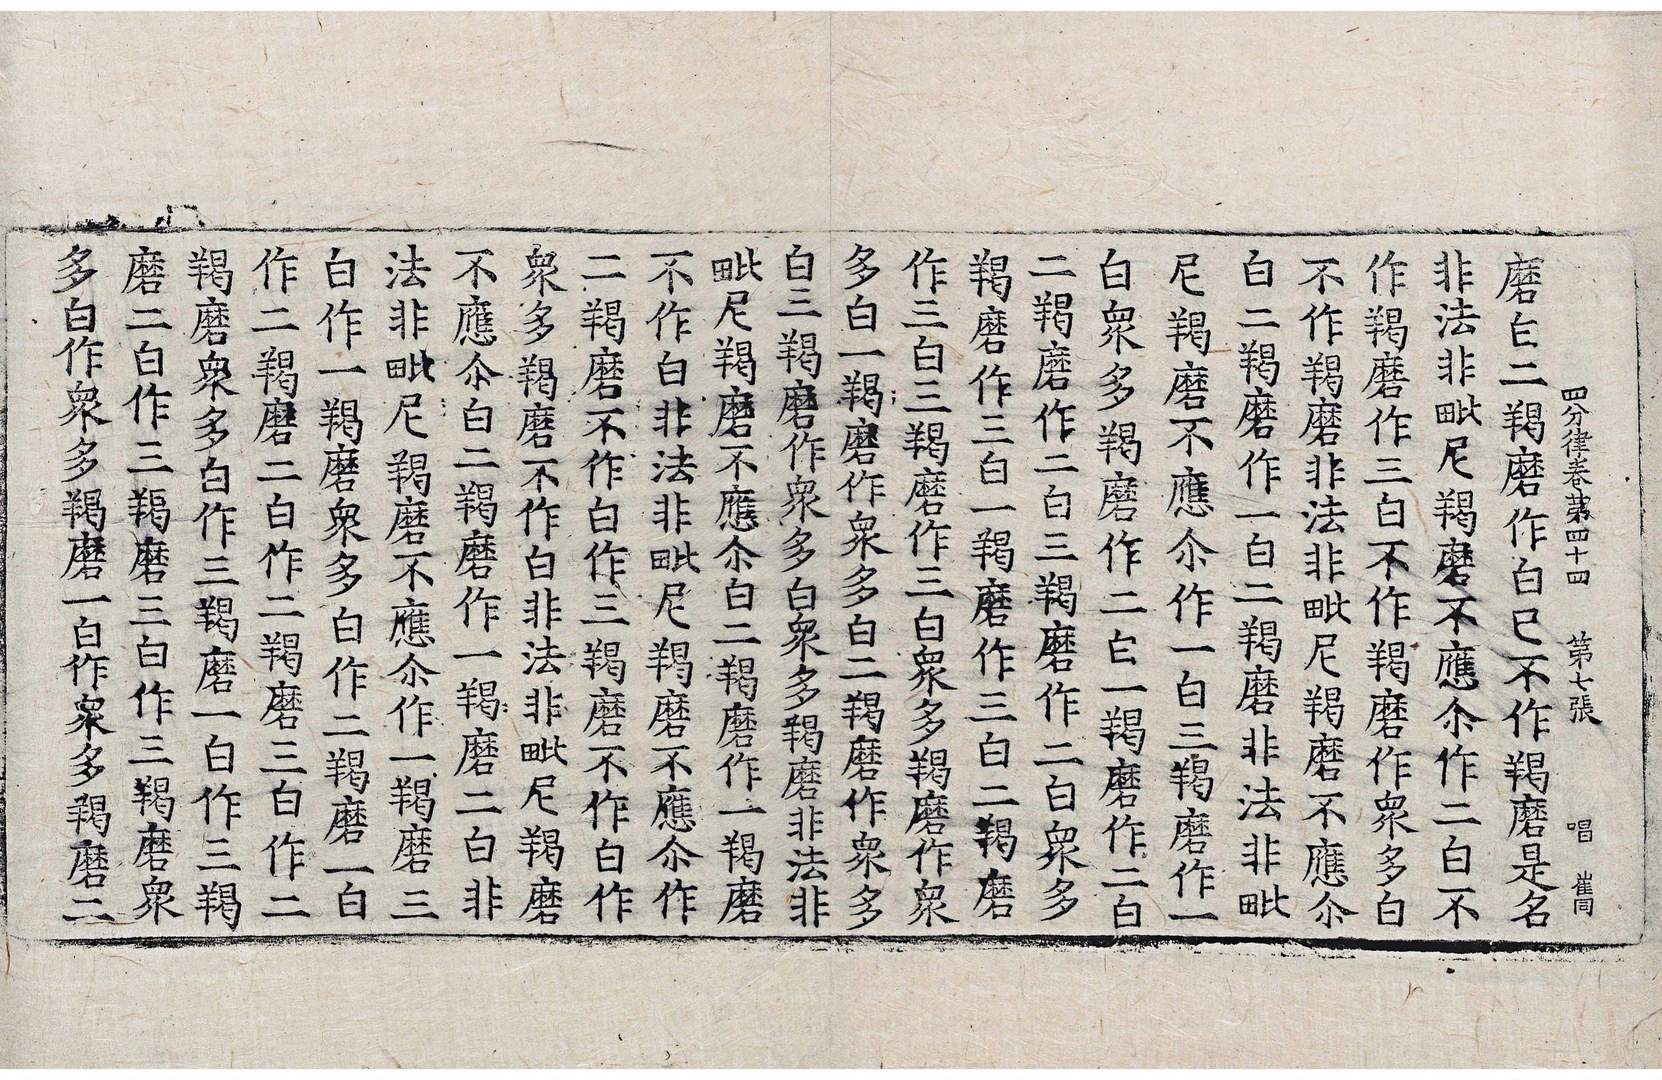 四分律卷第四十四 第七張 唱 崔同
磨白二羯磨作白已不作羯磨是名
非法非毗尼羯磨不應尒作二白不
作羯磨作三白不作羯磨作衆多白
不作羯磨非法非毗尼羯磨不應尒
白二羯磨作一白二羯磨非法非毗
尼羯磨不應尒作一白三羯磨作一
白衆多羯磨作二白一羯磨作二白
二羯磨作二白三羯磨作二白衆多
羯磨作三白一羯磨作三白二羯磨
作三白三羯磨作三白衆多羯磨作衆
多白一羯磨作衆多白二羯磨作衆多
白三羯磨作衆多白衆多羯磨非法非
毗尼羯磨不應尒白二羯磨作一羯磨
不作白非法非毗尼羯磨不應尒作
二羯磨不作白作三羯磨不作白作
衆多羯磨不作白非法非毗尼羯磨
不應尒白二羯磨作一羯磨二白非
法非毗尼羯磨不應尒作一羯磨三
白作一羯磨衆多白作二羯磨一白
作二羯磨二白作二羯磨三白作二
羯磨衆多白作三羯磨一白作三羯
磨二白作三羯磨三白作三羯磨衆
多白作衆多羯磨一白作衆多羯磨二